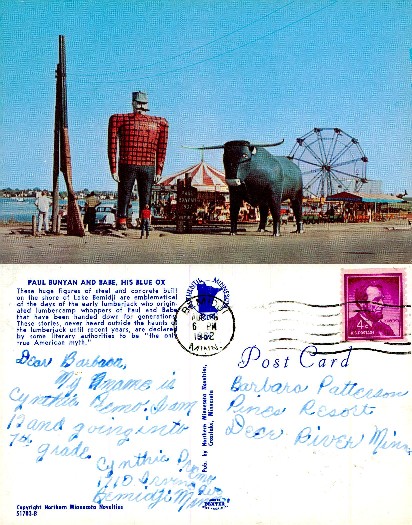 PAUL BUNYAN AND BABE, HIS BLUE OX
These huge figures of steel and concrete built
on the shore of Lake Bemidji are emblematical
of the days of the early lumberjack who origin-
ated lumbercamp whoppers of Paul and Babe
that have been handed down for generations.
These stories, never heard outside the haunts of
the lumberjack until recent years, are declared
by some literary authorities to be "the only
true American myth."
Dear Barbara,
My name is
Cynthia Demo, I am
12 and going into
7th grade
Cynthia Demo
Irving
Bemidji Minn
Copyright Northern Minnesota Novelties
51783-B
Pub. by Northern Minnesota Novelties,
Crosslake, Minnesota
BEMIDJI, MINNESOTA
6 PM
1962
MINN.
4¢
Post Card
Barbara Patterson
Pines Resort
Deer River Minn.
DEXTER